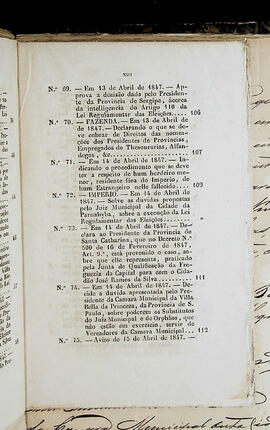 XIII
N.º 69. — Em 13 de Abril de 1847. — Ap-
prova a decisão dada pelo Presiden-
te da Provincia de Sergipe, ácerca
da intelligencia do Artigo 110 da
Lei Regulamentar das Eleições.... 106
N.º 70. — FAZENDA. — Em 13 de Abril de
de 1847. — Declarando o que se de-
ve cobrar de Direitos das nomea-
ções dos Presidentes de Provincias,
Empregados de Thesourarias, Alfan-
degas, &c. 107
N.º 71. — Em 14 de Abril de 1847. — In-
dicando o procedimento que se deve
ter a respeito de hum herdeiro me-
nor, residente fóra do Imperio, de
hum Estrangeiro nelle fallecido.... 109
N.º 72. — IMPERIO. — Em 14 de Abril de
1847. — Solve as duvidas propostas
pelo Juiz Municipal da Cidade da
Parnahyba, sobre a execução da Lei
Regulamentar das Eleições
N.º 73. — Em 14 de Abril de 1847. — De-
clara ao Presidente da Provincia de
Santa Catharina, que no Decreto N.º
500 de 16 de Fevereiro de 1847,
Art. 9.º, está prevenido o caso, so-
bre que elle representa, praticado
pela Junta de Qualificação da Fre-
guezia da Capital para com o Cida-
dão José Ramos da Silva 111
N.º 74. — Em 14 de Abril de 1847. — De-
cide a duvida apresentada pelo Pre-
sidente da Camara Municipal da Villa
Bella da Princeza, da Provincia de S.
Paulo, sobre poderem os Substitutos
do Juiz Municipal e de Orphãos, que
não estão em exercicio, servir de
Vereadores da Camara Municipal... 112
N.º 75. — Aviso de 15 de Abril de 1847. —